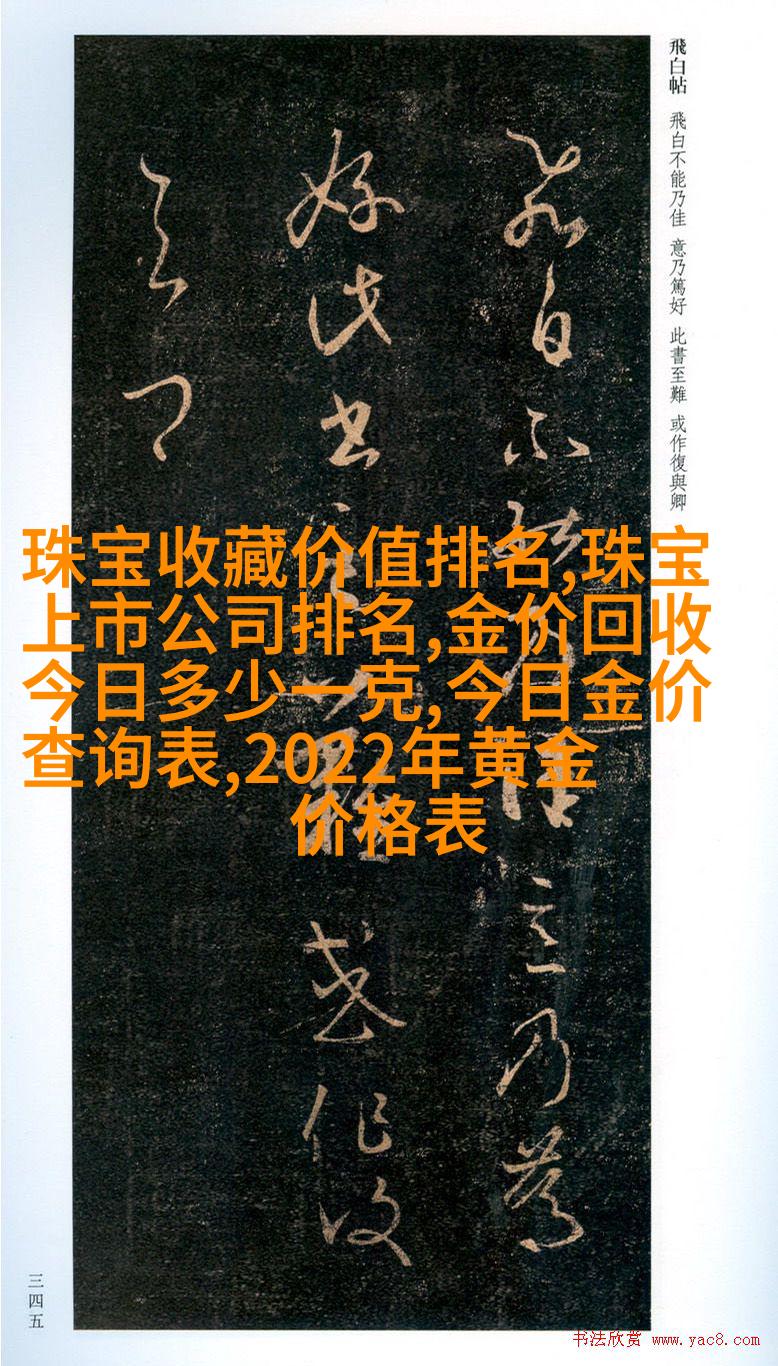 飛白帖 飛白不能乃佳 意乃篤好 此書至難 或作復與卿
飛白不能乃佳意乃篤
好此書至難或作復
與卿
珠宝收藏价值排名,珠宝
上市公司排名,金价回收
今日多少一克,今日金价
查询表,2022年黄金
价格表
三四五
书法欣赏 www.yac8.com